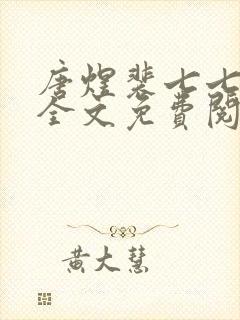 唐煌裴七七
全文免費閱
黃大慧